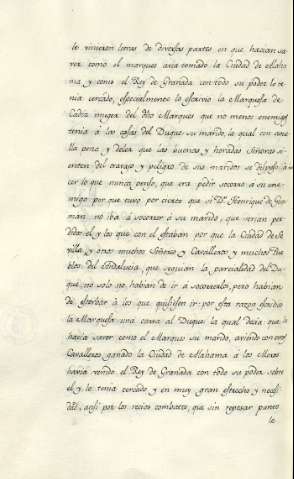 le vinieron letras de diversas partes en que hacian sa
ver como el marques avia tomado la Ciudad de Alha
ma y como el Rey de Granada con todo su poder le te
nia cercado, especialmente lo escrivio la Marquesa de
Cadiz muger del dho Marques que no menos enemiga
tenia á las cosas del Duque su marido, la qual con
pena y dolor que las buenas y honradas Señoras si
enten del travajo y peligro de sus maridos se dispuso á
cer lo que nunca penso, que era pedir socorro á su ene
migo por que tuvo por cierto que si Dn. Henrrique de Guz
man no iba á socorrer á su marido, que serian per
didos el y los que con el estaban por que la Ciudad de Se
villa y otros muchos Señores y Cavalleros y muchos Pue
blos del Andalucia, que seguian la parcialidad del Du
que, no solo no habian de ir á socorrerlo, pero habian
de estorbar á los que quisiesen ir: por esta razon escribio
la Marquesa una carta al Duque la qual decia que le
hacia saver como el Marques su marido, aviendo con otros
Cavalleros ganado la Ciudad de Alhama á los Moros
havia venido el Rey de Granada con todo su poder sobre
el y le tenia cercado y en muy gran estrecho y necesi
dad, assi por los recios combates, que sin reposar punto
le